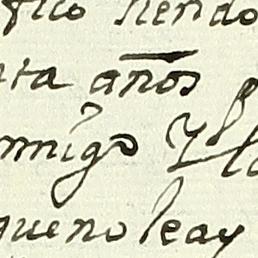 fico siendo
nta años
nmigo Y
que no leay